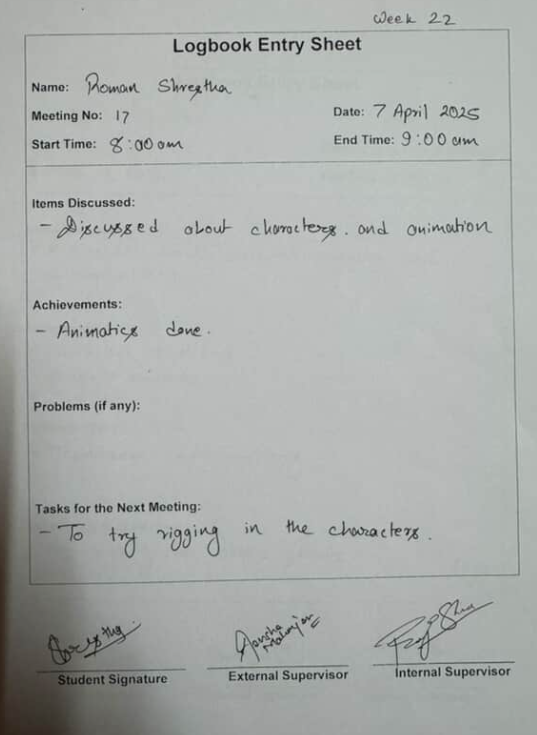 Week 22
Logbook Entry Sheet
Name: Roman Shrestha
Meeting No: 17
Date: 7 April 2025
Start Time: 8:00 am
End Time: 9:00 am
Items Discussed:
- Discussed about characters. and animation
Achievements:
- Animatics done.
Problems (if any):
Tasks for the Next Meeting:
- To try rigging in the characters.
Shrestha
Maharjan
Student Signature
External Supervisor
Internal Supervisor